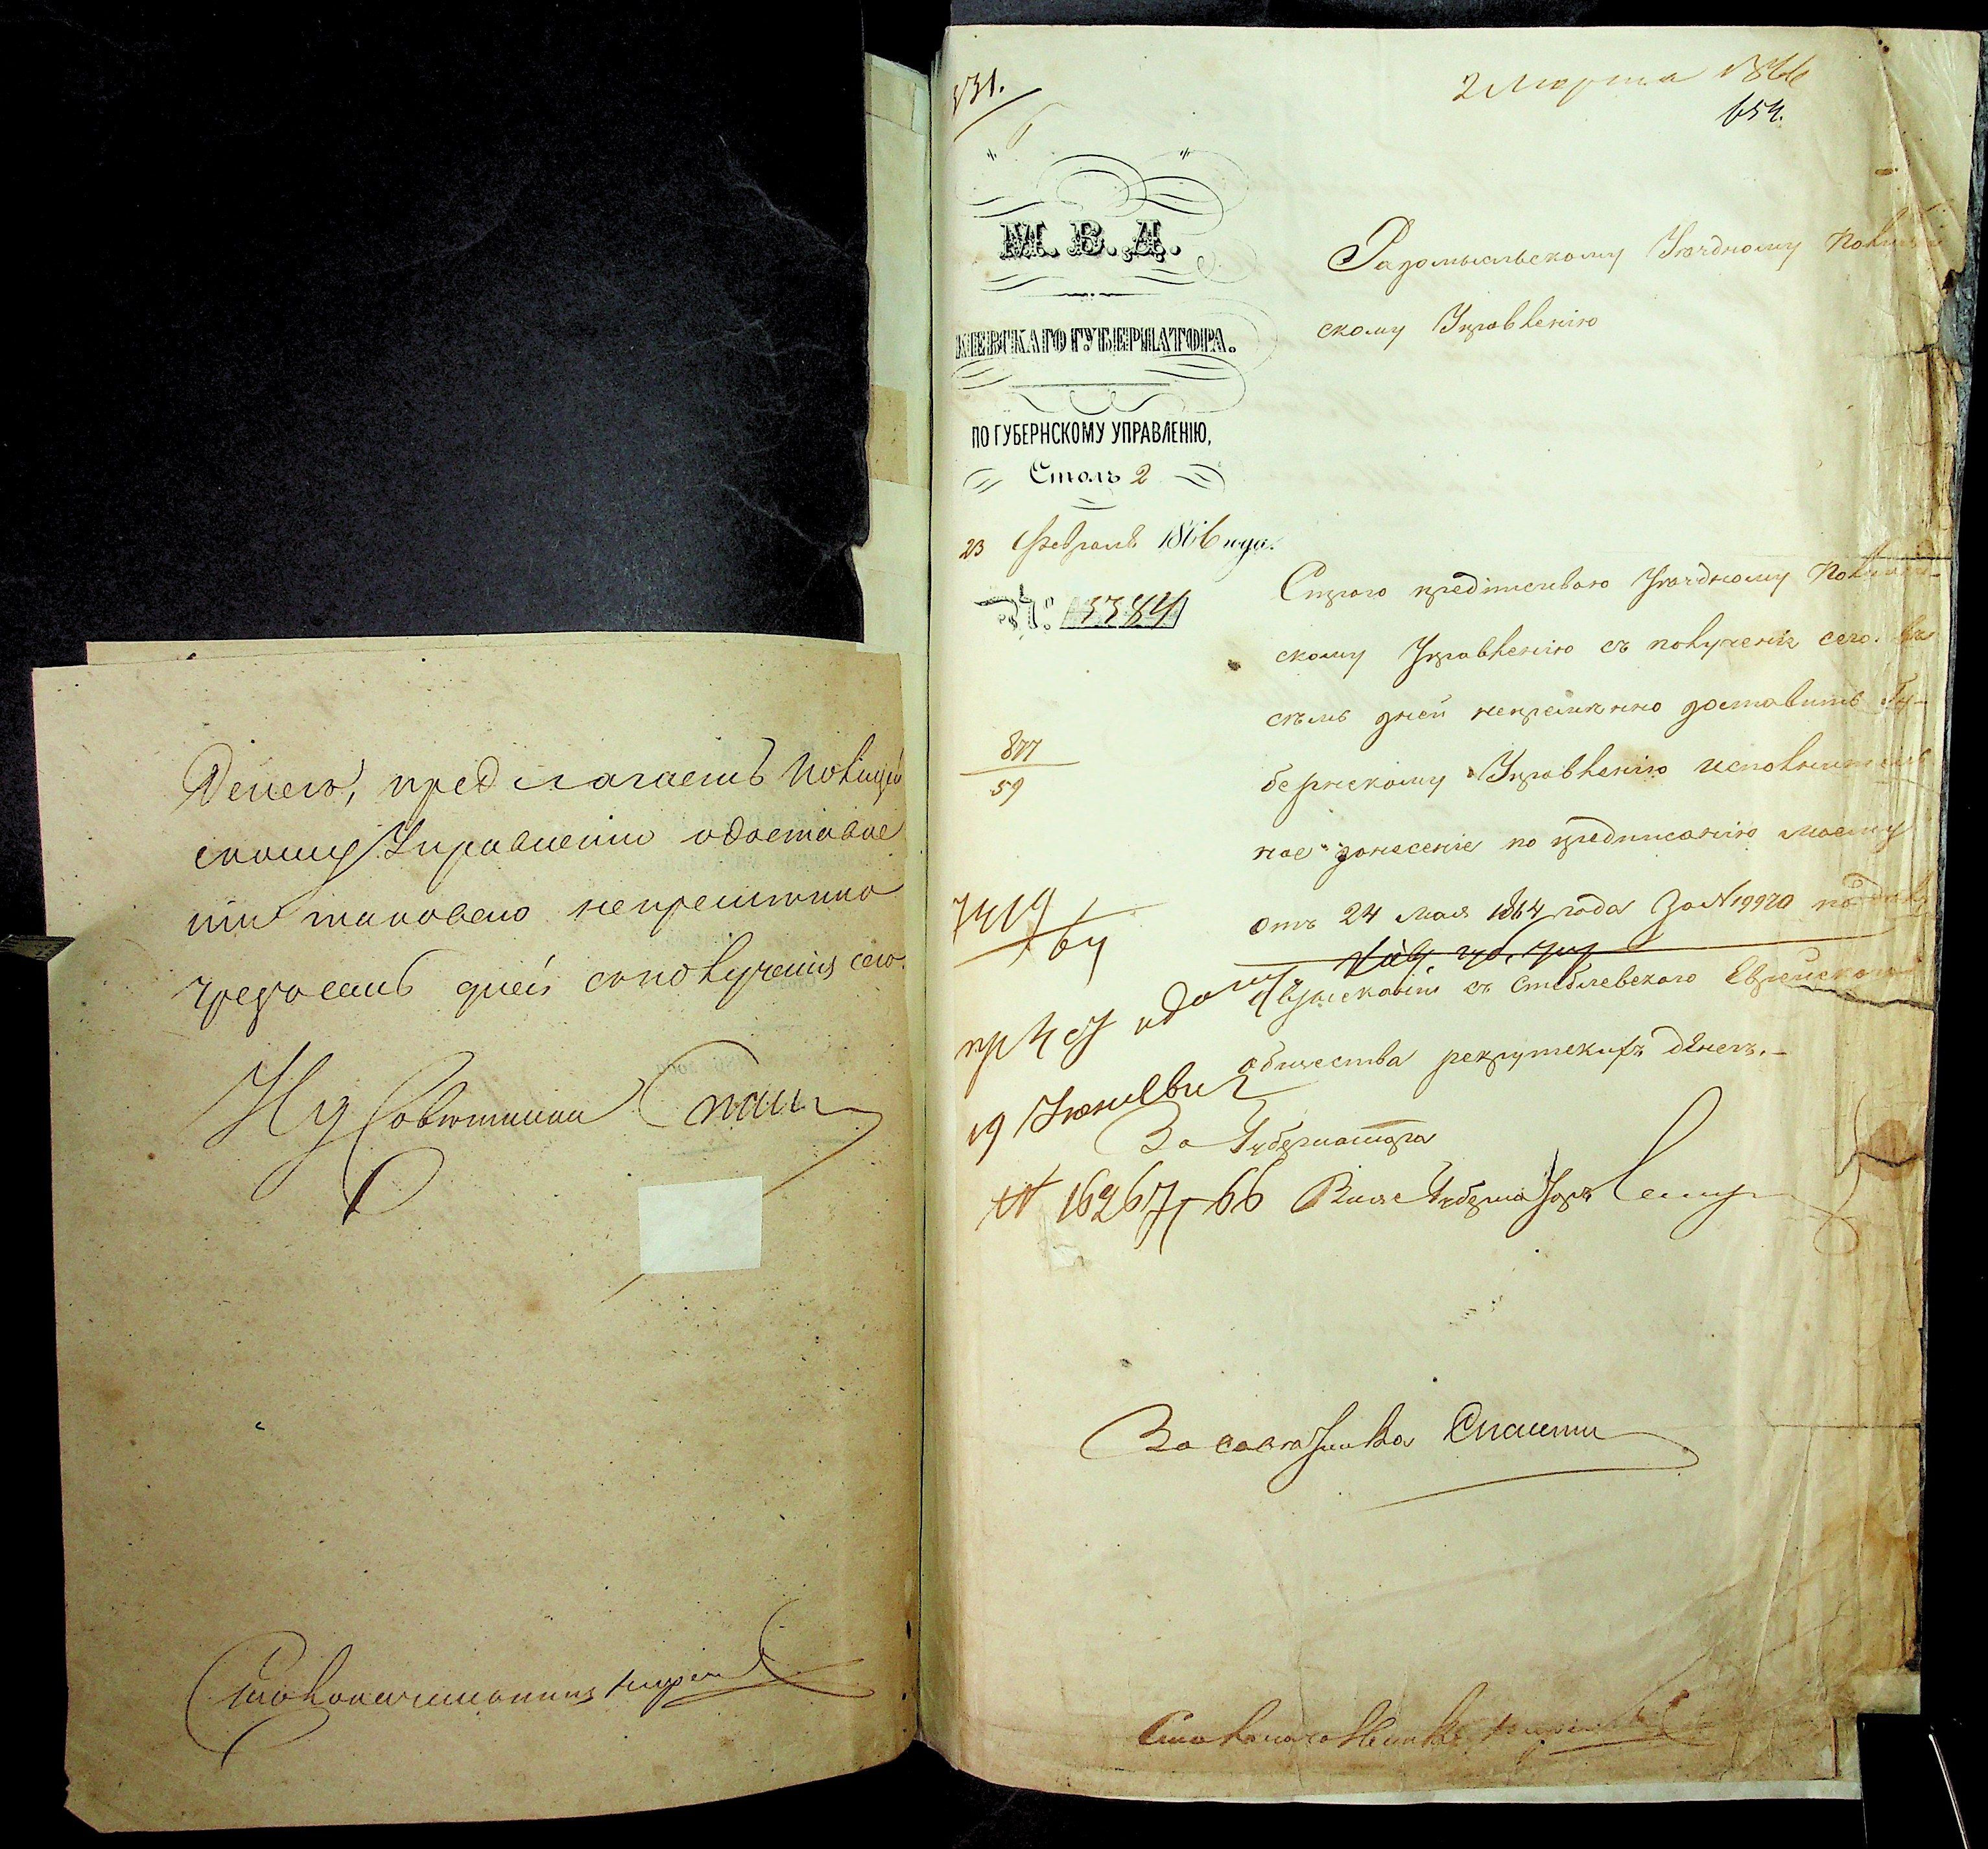 денегъ, предлагаетъ Полицей
скому Управленію одоставле
ніи таковаго непремѣнно
чрезъ семь дней сополученія сего.
Совѣтника
Столоначальникъ
131.
2 Марта 1866
654.
М. В. Д.
КІЕВСКАГО ГУБЕРНАТОРА.
ПО ГУБЕРНСКОМУ УПРАВЛЕНІЮ,
Столъ 2
23 Февраля 1866 года.
№ 3384
877
59
7419
64
19
№ 16267-66
Радомысльскому Уѣздному Полицей
скому Управленію
Строго предписываю Уѣздному Полицей-
скому Управленію съ полученія сего въ
семь дней непремѣнно доставить Гу-
бернскому Управленію исполнитель
ное донесеніе по предписанію моему
отъ 24 мая 1864 года За N 19920 по дѣлу
о взысканіи съ Стеблевскаго Еврейскаго
общества рекрутскихъ денегъ.-
За Губернатора
Вице Губернаторъ
За совѣтника
Столоначальникъ